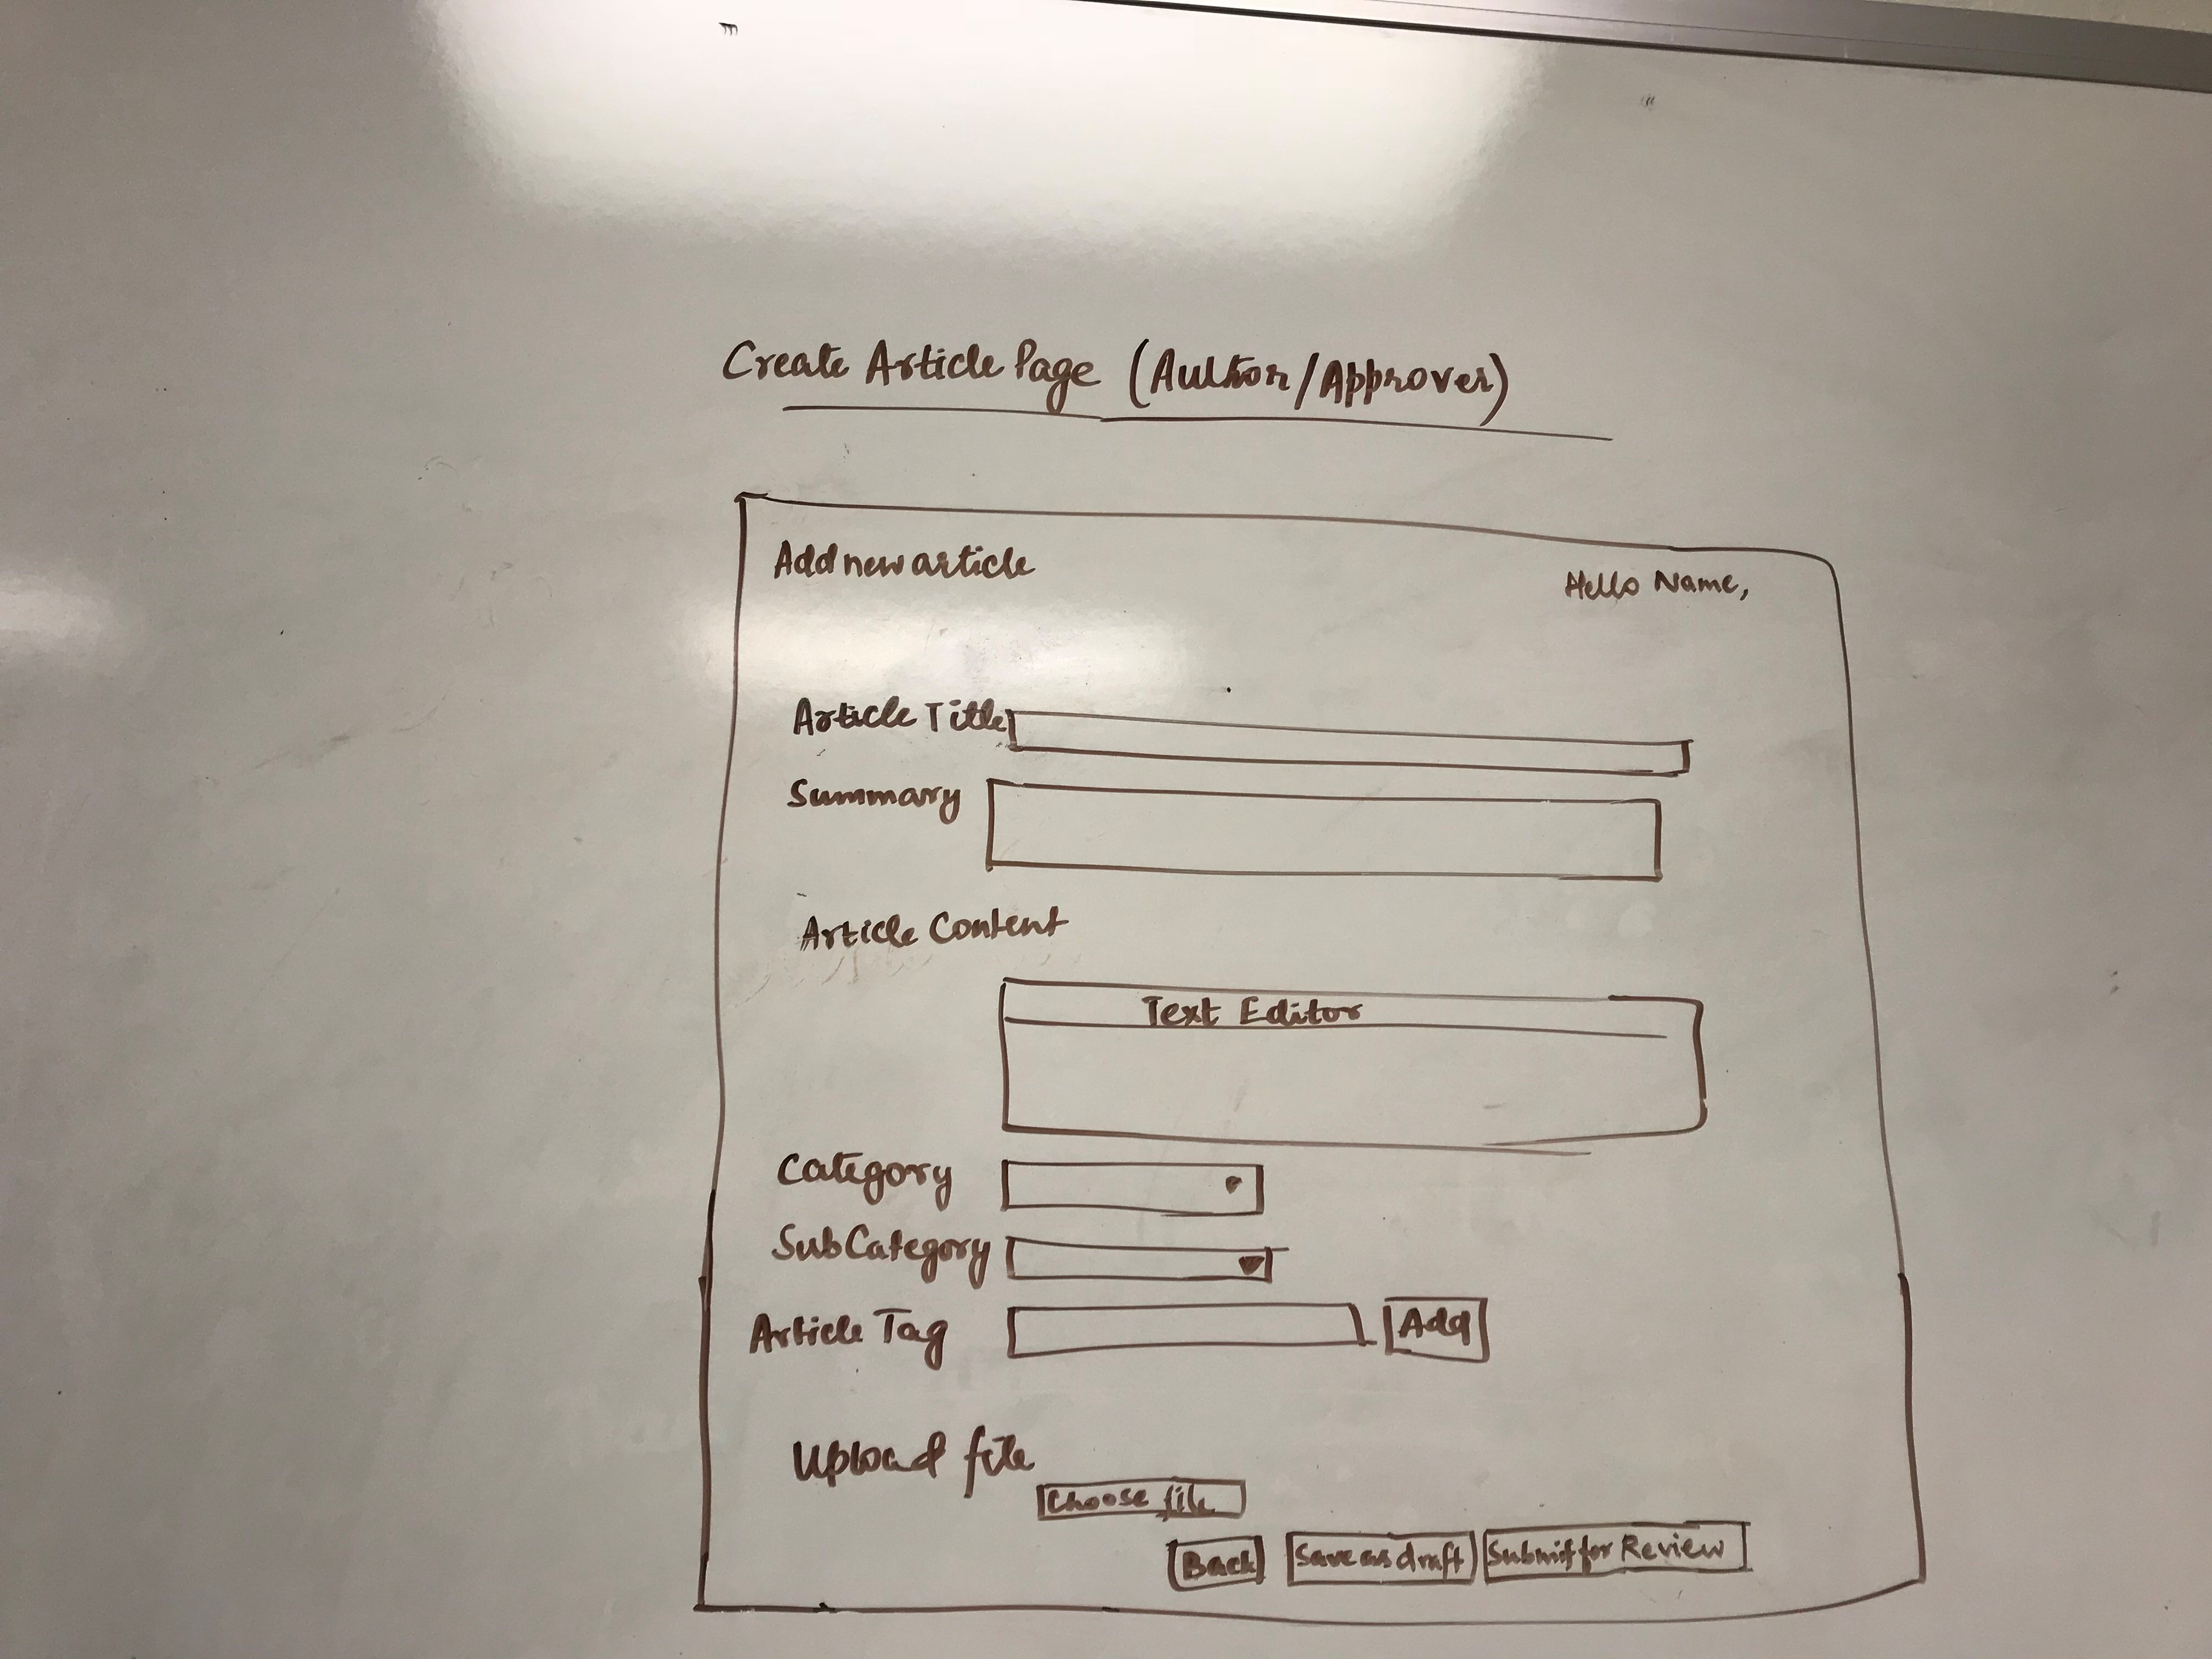 Create Article Page (Author/Approver)
Add new article
Hello Name,
Article Title
Summary
Article Content
Text Editor
Category
SubCategory
Article Tag
Add
Upload file
Choose file
Back
Save as draft
Submit for Review